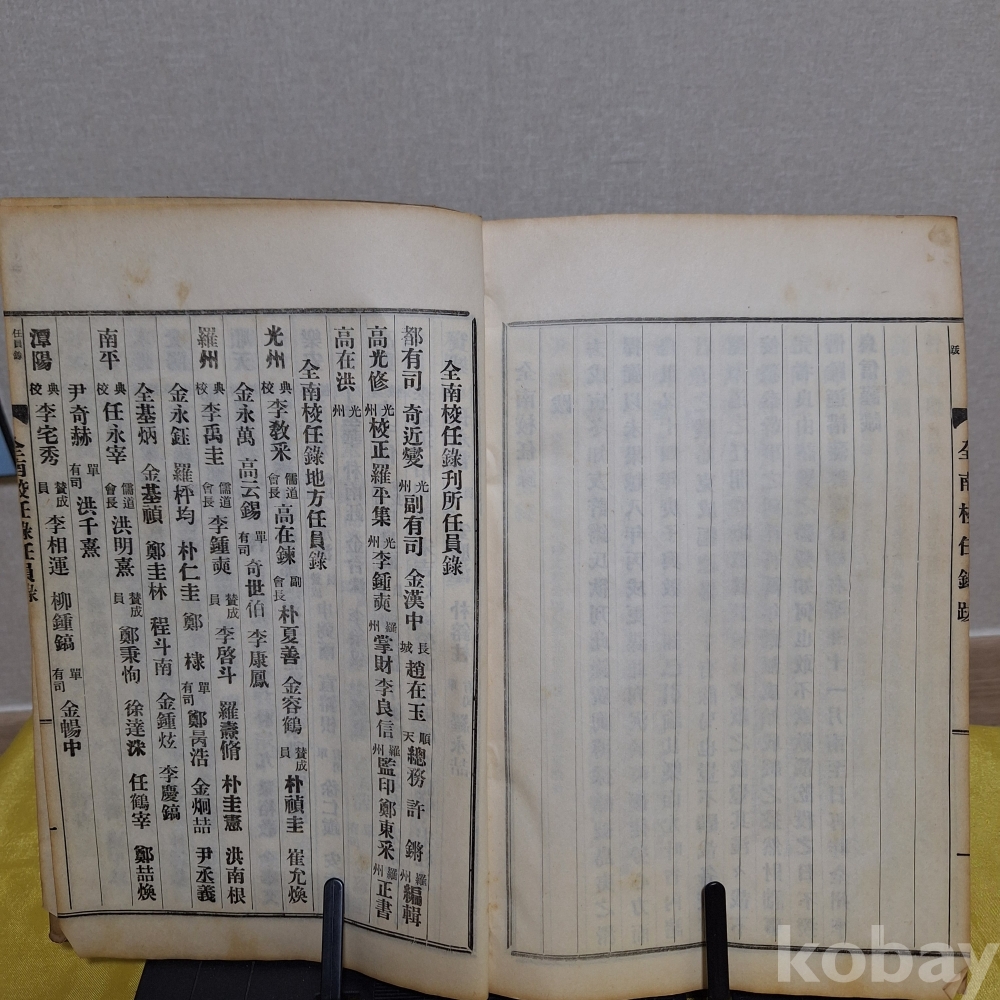 跋
全南校任錄跋
全南校任錄刊所任員錄
都有司 奇近燮 光州 副有司 金漢中 長城 趙在玉 順天 總務 許鏘 羅州 編輯
高光修 光州 校正 羅平集 光州 李鍾奭 羅州 掌財 李良信 羅州 監印 鄭東采 羅州 正書
高在洪 光州
全南校任錄地方任員錄
光州 典校 李敎采 儒道會長 高在鍊 副會長 朴夏善 金容鶴 贊成員 朴禎圭 崔允煥
金永萬 高云錫 單有司 奇世伯 李康鳳
羅州 典校 李禹圭 儒道會長 李鍾奭 贊成員 李啓斗 羅燾脩 朴圭憲 洪南根
金永鈺 羅枰均 朴仁圭 鄭棣 單有司 鄭昺浩 金炯喆 尹丞義
全基炳 金基禎 鄭圭林 程斗南 金鍾炫 李慶鎬
南平 典校 任永宰 儒道會長 洪明熹 贊成員 鄭秉恂 徐達洙 任鶴宰 鄭喆煥
尹奇赫 單有司 洪千熹
潭陽 典校 李宅秀 贊成員 李相運 柳鍾鎬 單有司 金暢中
任員錄
全南校任錄任員錄
kobay